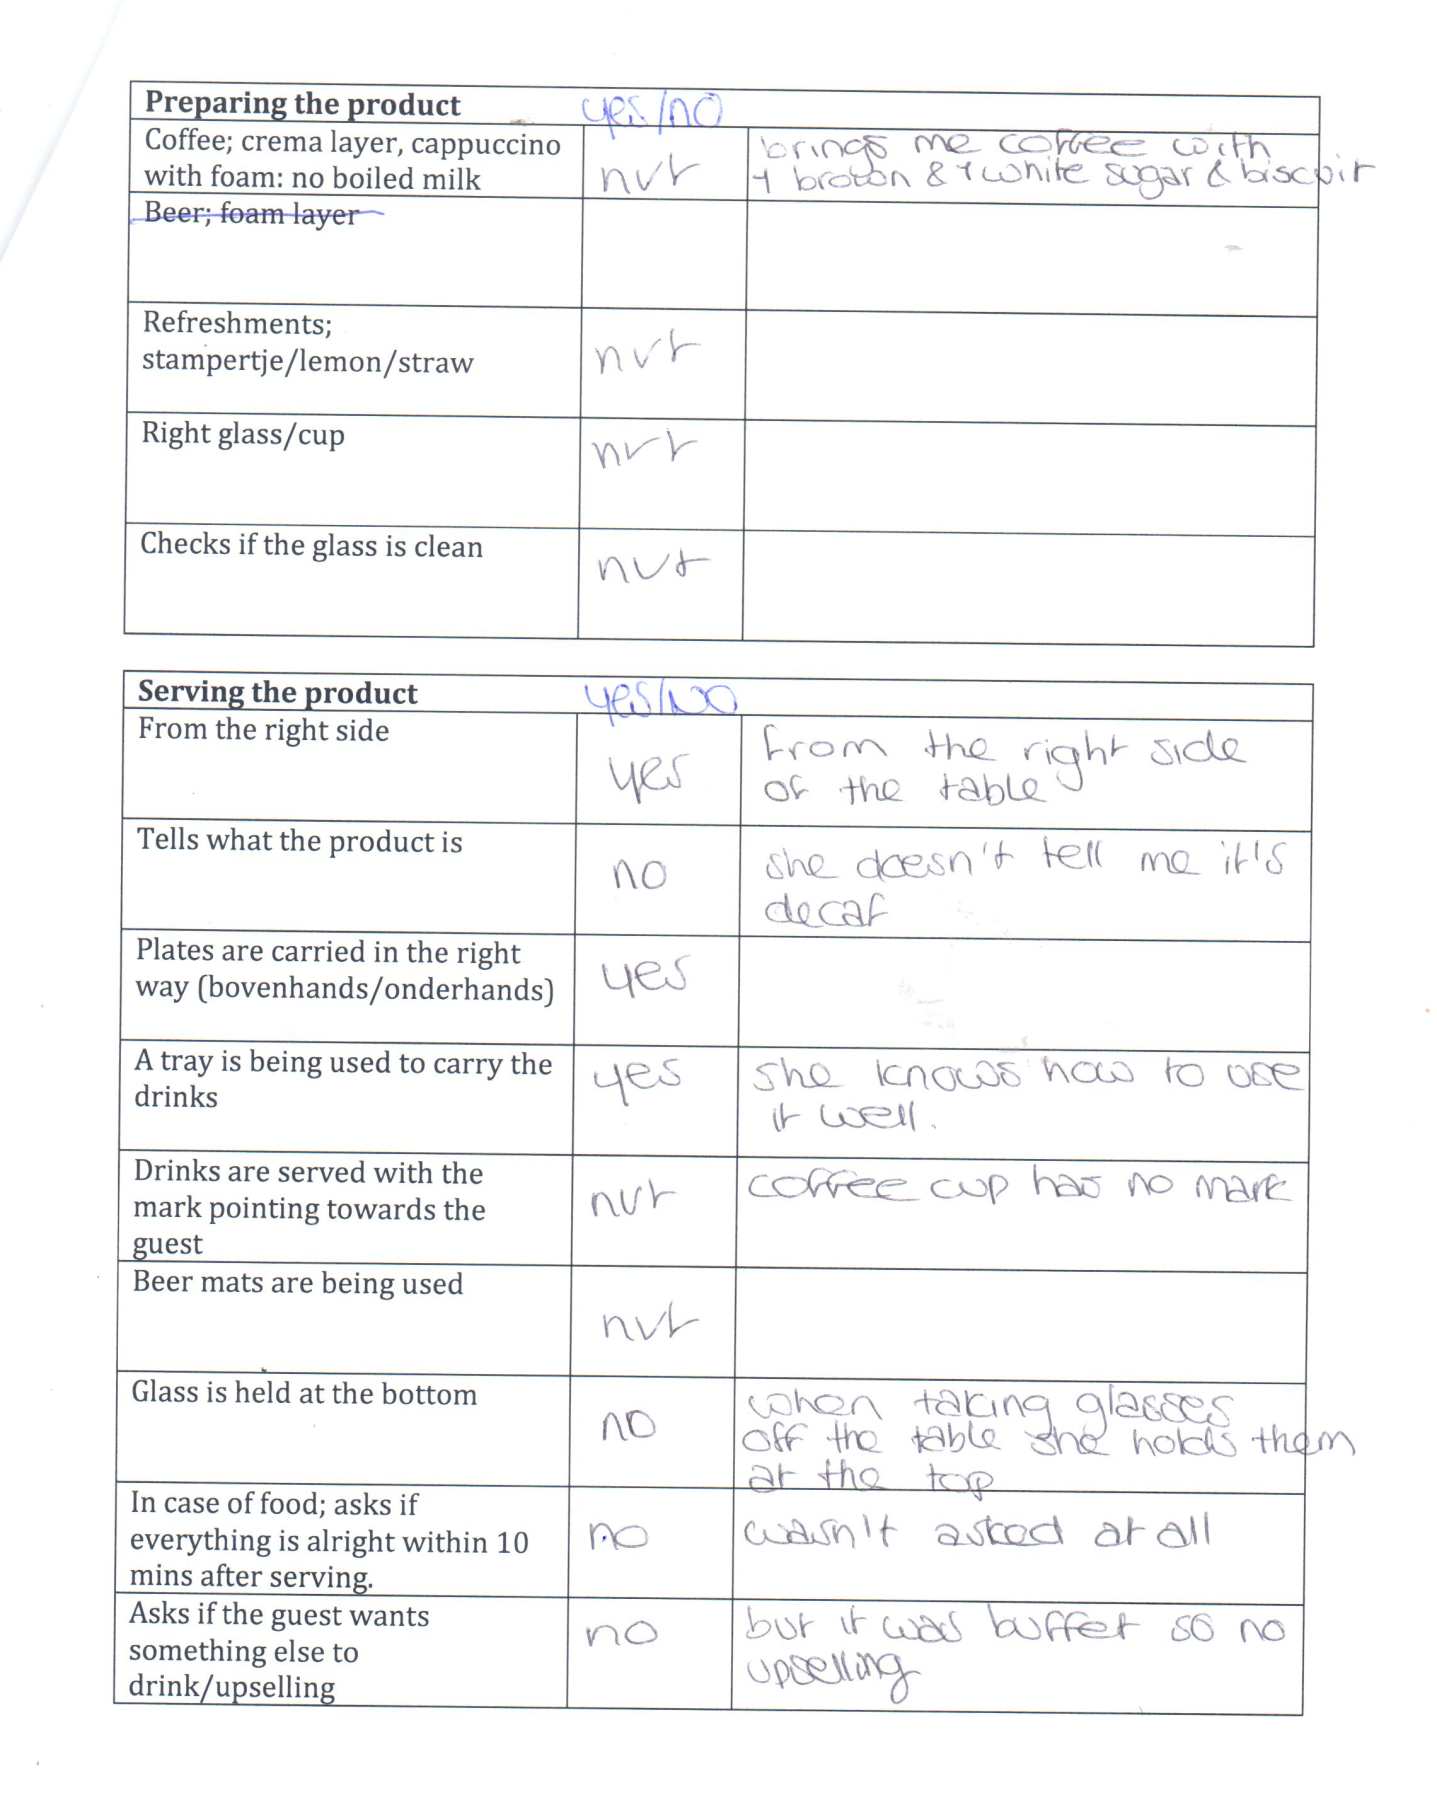 Preparing the product yes/no
Coffee; crema layer, cappuccino
with foam: no boiled milk
nvt
brings me coffee with
1 broton & 1 white sugar & biscuit
Beer; foam layer
Refreshments;
stampertje/lemon/straw
nvt
Right glass/cup
nvt
Checks if the glass is clean
nvt
Serving the product yes/no
From the right side
yes
from the right side
of the table
Tells what the product is
no
she doesn't tell me it's
decaf
Plates are carried in the right
way (bovenhands/onderhands)
yes
A tray is being used to carry the
drinks
yes
she knows how to use
it well.
Drinks are served with the
mark pointing towards the
guest
nvt
coffee cup has no mark
Beer mats are being used
nvt
Glass is held at the bottom
no
when taking glasses
off the table she holds them
at the top
In case of food; asks if
everything is alright within 10
mins after serving.
no
wasn't asked at all
Asks if the guest wants
something else to
drink/upselling
no
but it was buffet so no
upselling